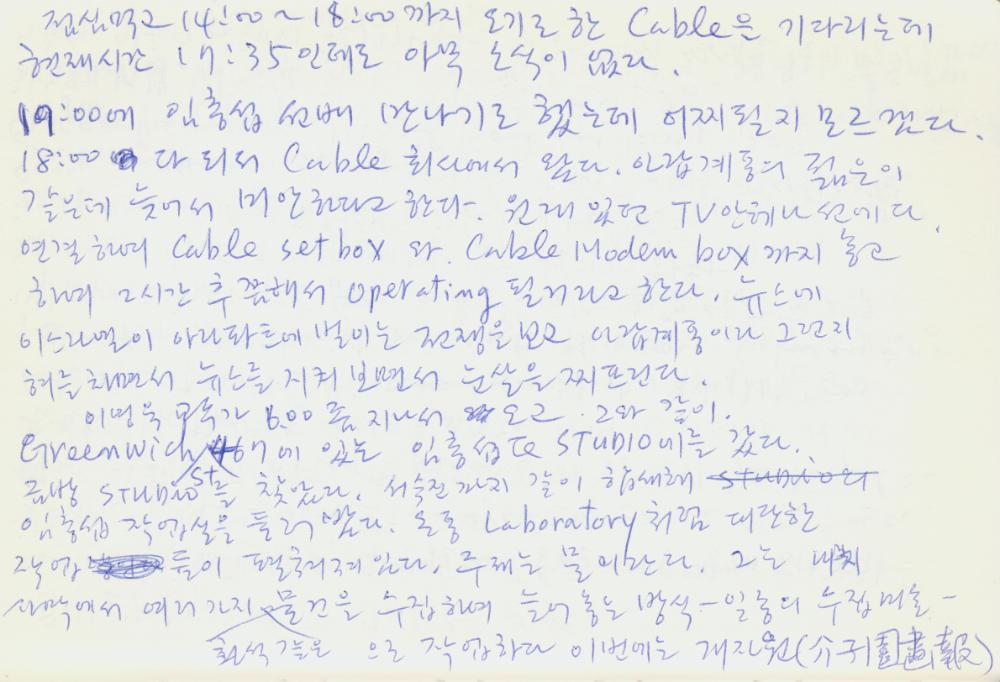 점심먹고 14:00~18:00까지 오기로 한 Cable을 기다리는데
현재시간 17:35인데도 아무 소식이 없다.
19:00에 임충섭 선배 만나기로 했는데 어찌될지 모르겠다.
18:00 다 되서 Cable 회사에서 왔다. 아랍계통의 젊은이
같은데 늦어서 미안하다고 한다. 원래 있던 TV안테나선에다
연결하여 Cable set box 와 Cable Modem box 까지 놓고
하여 2시간 후쯤해서 operating 될거라고 한다. 뉴스에
이스라엘이 아라파트에 벌이는 전쟁을 보고 아랍계통이라 그런지
혀를 차면서 뉴스를 지켜 보면서 눈살을 찌프린다.
이명욱 6.00 쯤 지나서 오고 그와 같이.
Greenwich st 467에 있는 임충섭 STUDIO에를 갔다.
금방 STUDIO를 찾았다. 서숙진까지 같이 합세해
임충섭 작업실을 둘러 봤다. 온통 Laboratory처럼 대단한
작업들이 펼쳐져 있다. 주제는 물이란다. 그는
사막에서 여러가지 화석같은 물건을 수집하여 늘어 놓는 방식-일종의 수집 -
으로 작업하다 이번에는 개자원(介子園畵報)